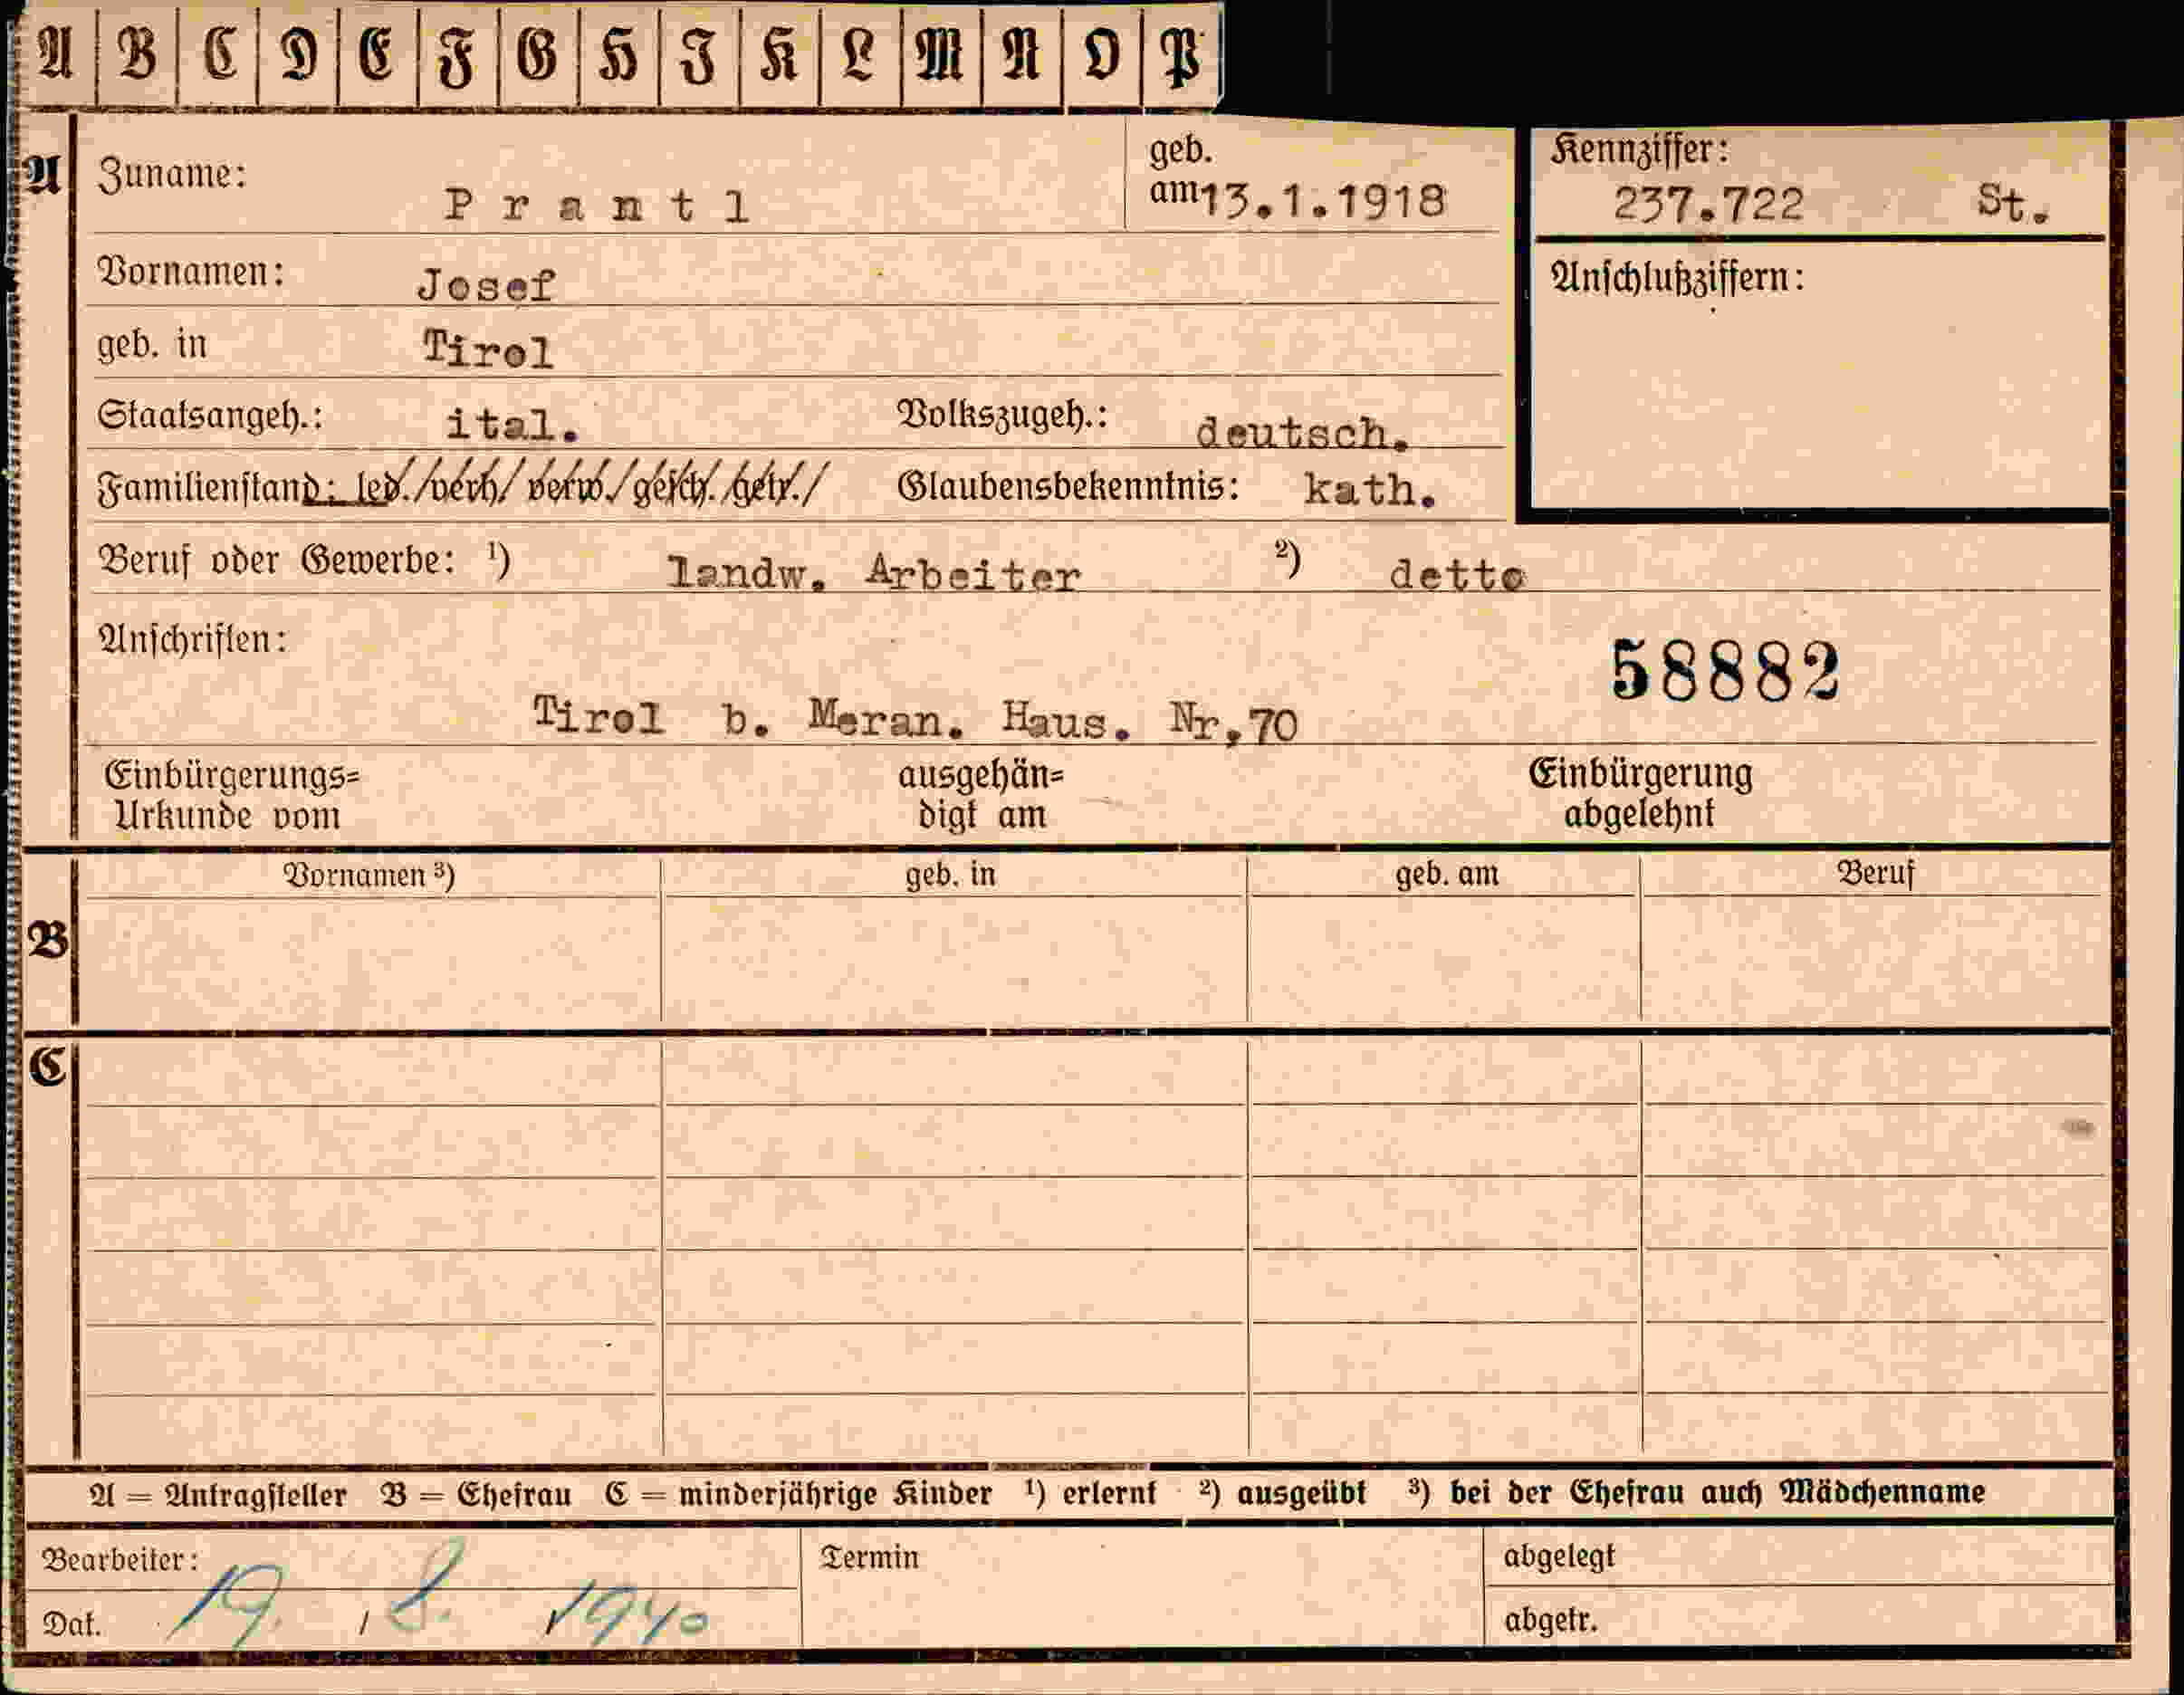 A B C D E F G H I K L M N O P
A Zuname: Prantl geb. am 13.1.1918 Kennziffer: 237.722 St.
Vornamen: Josef Anschlußziffern:
geb. in Tirol
Staatsangeh.: ital. Volkszugeh.: deutsch.
Familienstand: led./verh/verw./gesch./getr./ Glaubensbekenntnis: kath.
Beruf oder Gewerbe: ¹) landw. Arbeiter ²) detto
Anschriften: 58882
Tirol b. Meran. Haus. Nr,70
Einbürgerungs= ausgehän= Einbürgerung
Urkunde vom digt am abgelehnt
B Vornamen ³) geb. in geb. am Beruf
C
A = Antragsteller B = Ehefrau C = minderjährige Kinder ¹) erlernt ²) ausgeübt ³) bei der Ehefrau auch Mädchenname
Bearbeiter: Termin abgelegt
Dat. 19. / 8. 1940 abgetr.